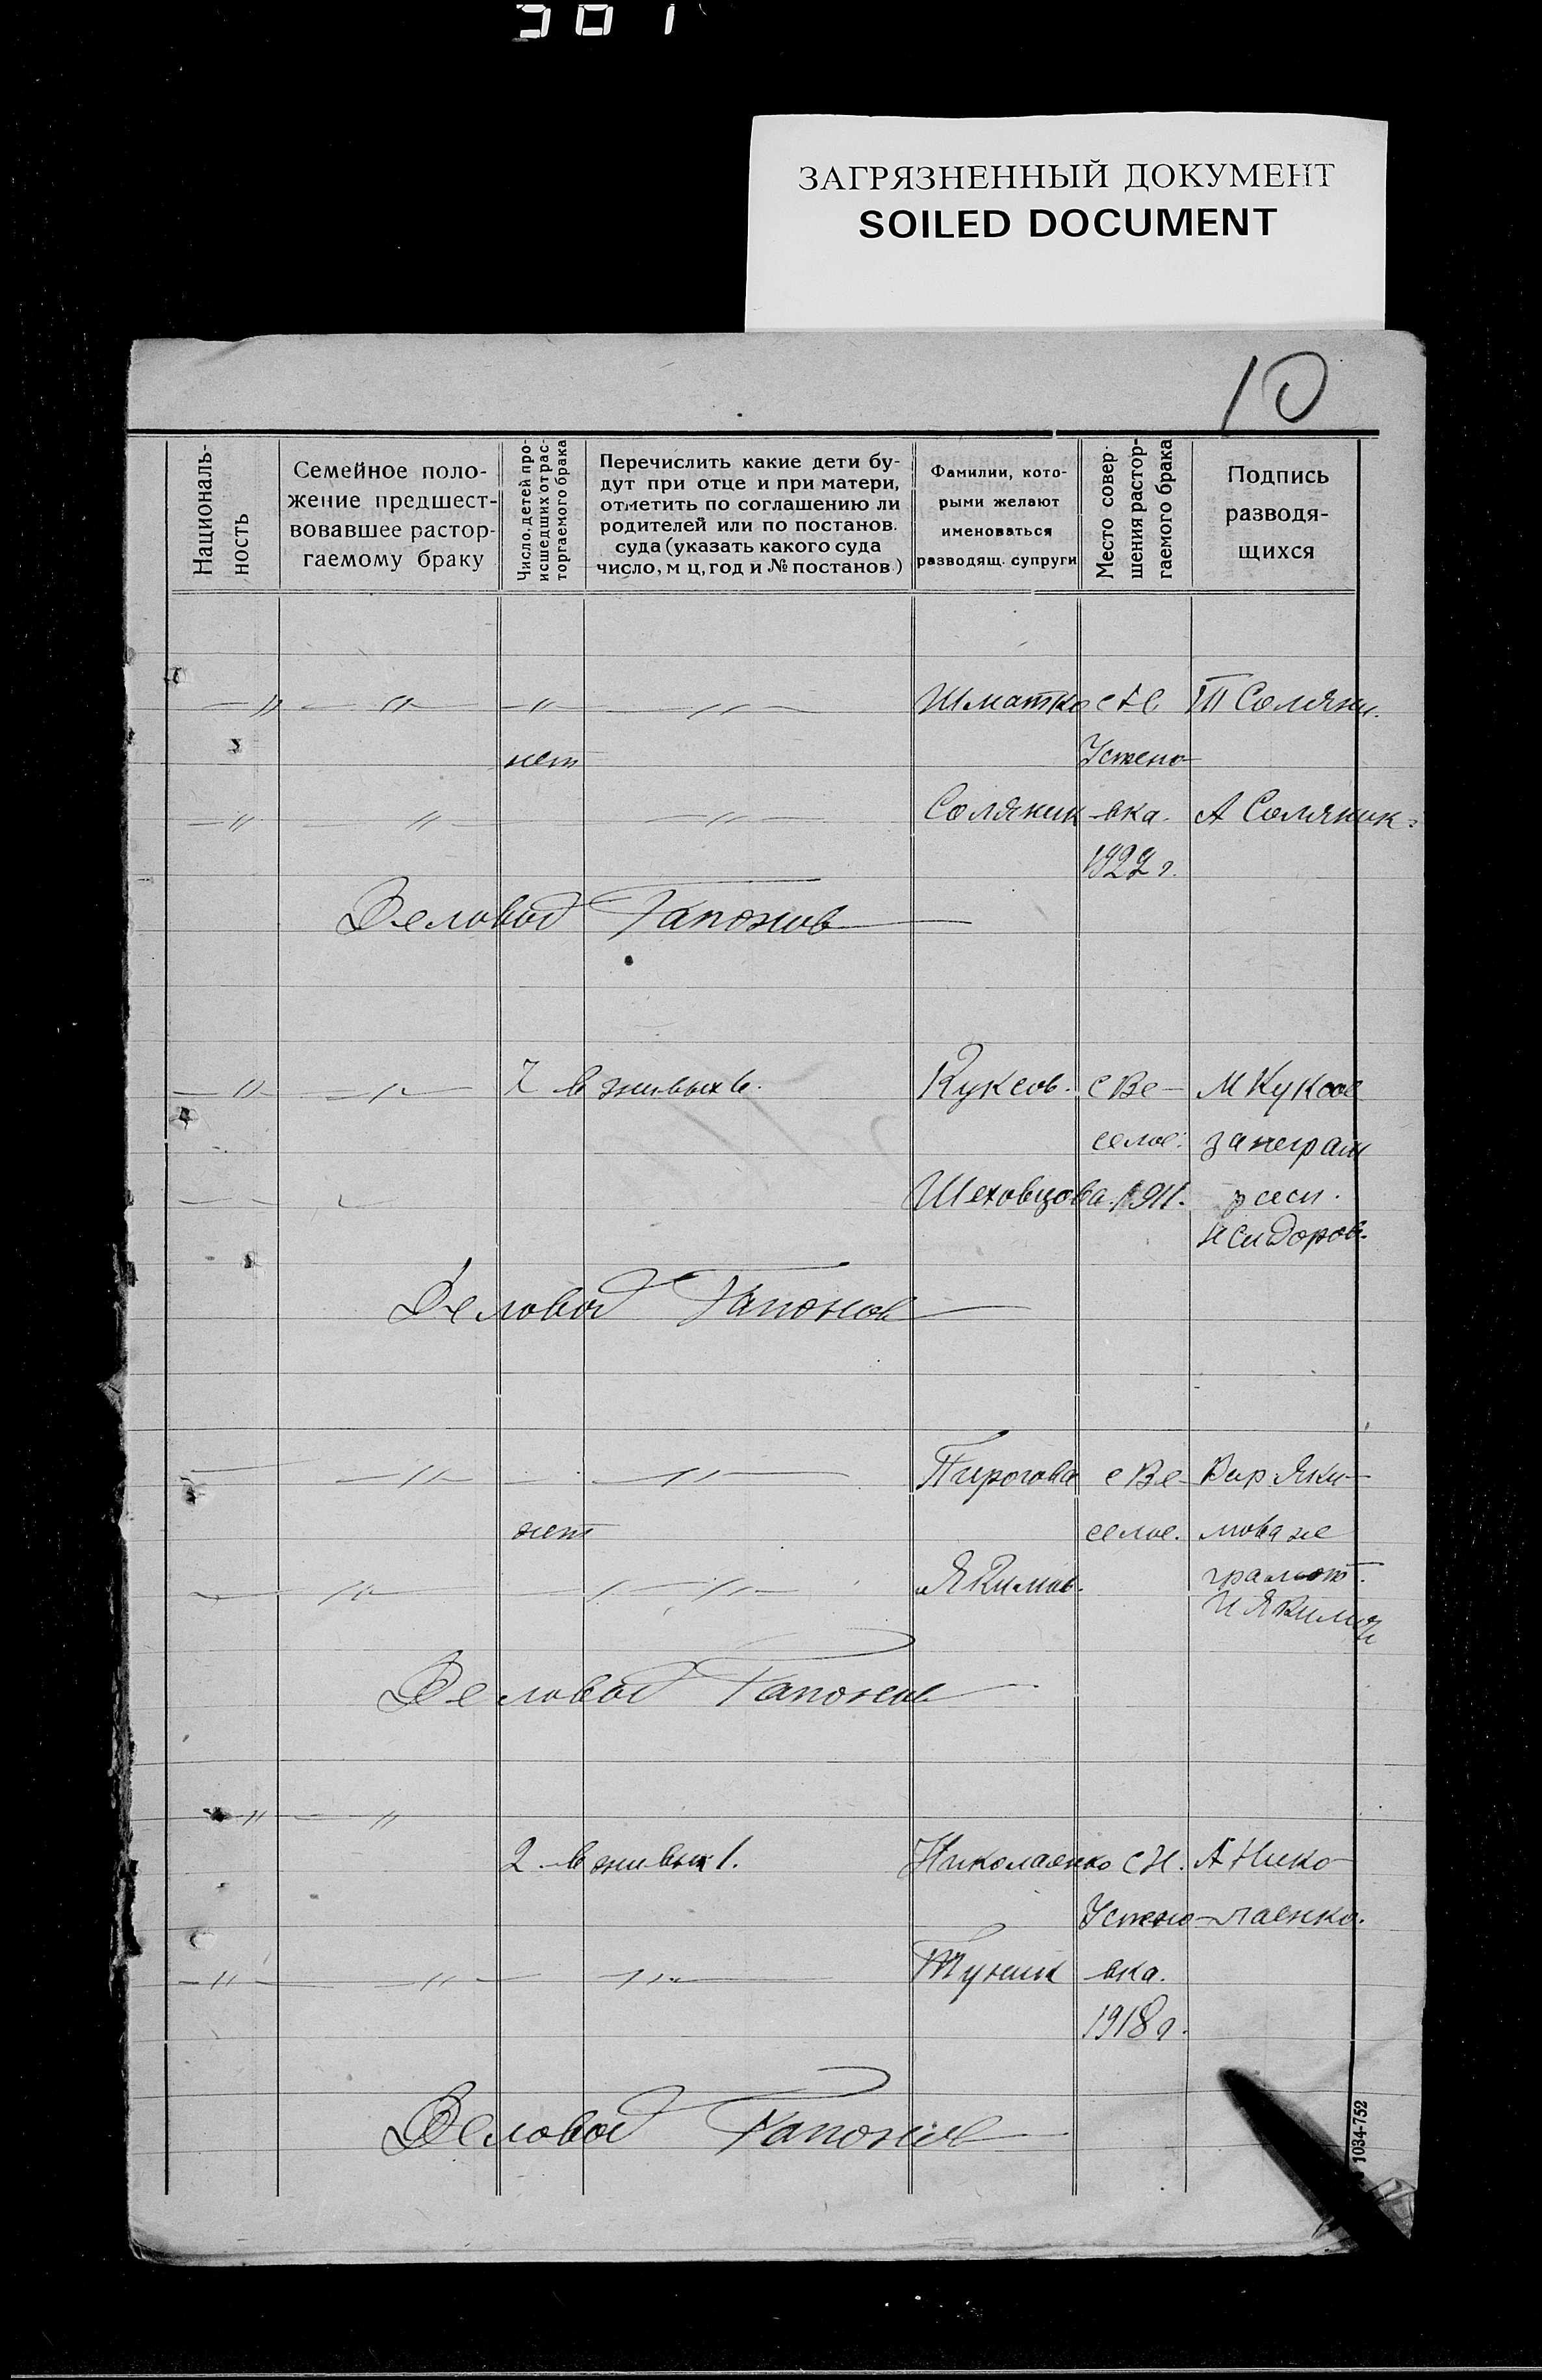 301
ЗАГРЯЗНЕННЫЙ ДОКУМЕНТ
SOILED DOCUMENT
10
Националь-
ность
Семейное поло-
жение предшест-
вовавшее растор-
гаемому браку
Число детей про-
исшедших от рас-
торгаемого брака
Перечислить какие дети бу-
дут при отце и при матери,
отметить по соглашению ли
родителей или по постанов.
суда (указать какого суда
число, м ц, год и № постанов.)
Фамилии, кото-
рыми желают
именоваться
разводящ. супруги
Место совер-
шения растор-
гаемого брака
Подпись
разводя-
щихся
— " — " — " — " — Шматко с Т Соляни.
нет Устено-
— " — " — " — Соляник -вка. А Соляник
1922 г.
Деловод Гапонов
— " — " — 7 в живых 6. Куксов. с Ве- М Куксов
селое. за неграм
Шеховцова. 1911.
Н Сидоров.
Деловод Гапонов
— " — " — Пирогова с Ве- Вар Яки-
нет селое. мова не
— " — " — Якимов. грамот.
И Якимов
Деловод Гапонов
— " — "
2 в живых 1. Николаенко с Н. А Нико-
Устено- лаенко.
— " — " — " — Туник вка.
1918 г.
Деловод Гапонов
1034-752